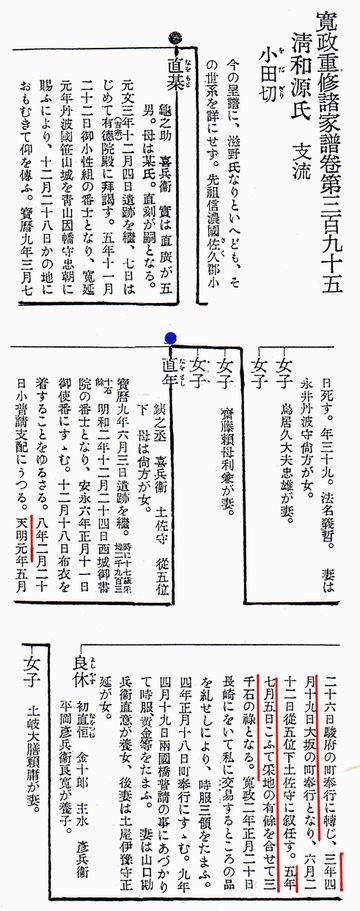 寬政重修諸家譜卷第三百九十五
淸和源氏 支流
小田切
をだぎり
今の呈譜に、滋野氏なりといへども、そ
の世系を詳にせず。先祖信濃國佐久郡小
直棊
なをもと
龜之助 喜兵衞 實は直廣が五
男。母は某氏。直刻が嗣となる。
元文三年十二月四日遺跡を繼、七日は
じめて有德院殿に拜謁す。五年十一月
(吉宗)
二十二日御小性組の番士となり、寬延
元年丹波國笹山城を靑山因幡守忠朝に
賜ふにより、十二月二十八日かの地に
おもむきて仰を傳ふ。寶曆九年三月七
日死す。年三十九。法名義哲。 妻は
永井丹波守尙方が女。
女子 鳥居久大夫忠雄が妻。
女子
女子 齋藤賴母利彙が妻。
女子
直年
なをとし
銕之丞 喜兵衞 土佐守 從五位
下 母は尙方が女。
寶曆九年六月三日遺跡を繼。時に十七歲采
地二千九百三
十石
餘 明和二年十二月二十四日西城御書
院の番士となり、安永六年正月十一日
御使番にすゝむ。十二月十八日布衣を
着することをゆるさる。八年二月二十
日小普請支配にうつる。天明元年五月
二十六日駿府の町奉行に轉じ、三年四
月十九日大坂の町奉行となり、六月二
十二日從五位下土佐守に叙任す。五年
七月五日こふて采地の有餘を合せて三
千石の祿となる。寬政二年正月二十日
長崎にをいて私に交易するところの品
を糺せしにより、時服三領をたまふ。
四年正月十八日町奉行にすゝむ。九年
四月十九日兩國橋普請の事にあづかり
て時服黃金等をたまふ。 妻は山口勘
兵衞直意が養女、後妻は土屋伊豫守正
延が女。
良休
よしやす
初直恒 金十郎 主水 彥兵衞
平岡彥兵衞良寬が養子。
女子 土岐大膳賴庸が妻。